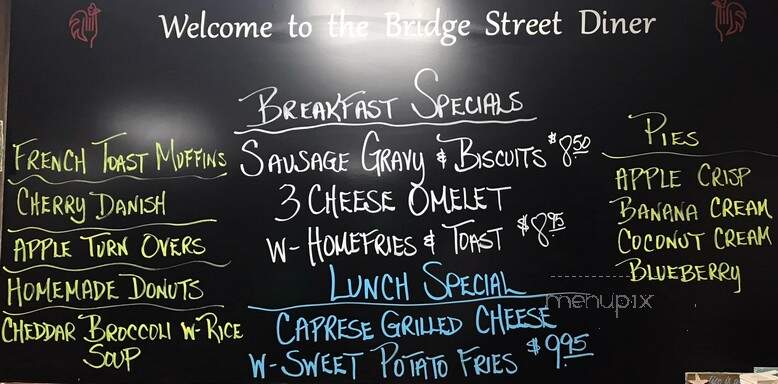 Welcome to the Bridge Street Diner
BREAKFAST SPECIALS
FRENCH TOAST MUFFINS
CHERRY DANISH
APPLE TURN OVERS
HOMEMADE DONUTS
CHEDDAR BROCCOLI W-RICE
SOUP
SAUSAGE GRAVY & BISCUITS $8.50
3 CHEESE OMELET
W- HOMEFRIES & TOAST $8.95
LUNCH SPECIAL
CAPRESE GRILLED CHEESE
W-SWEET POTATO FRIES $9.95
PIES
APPLE CRISP
BANANA CREAM
COCONUT CREAM
BLUEBERRY
menupix